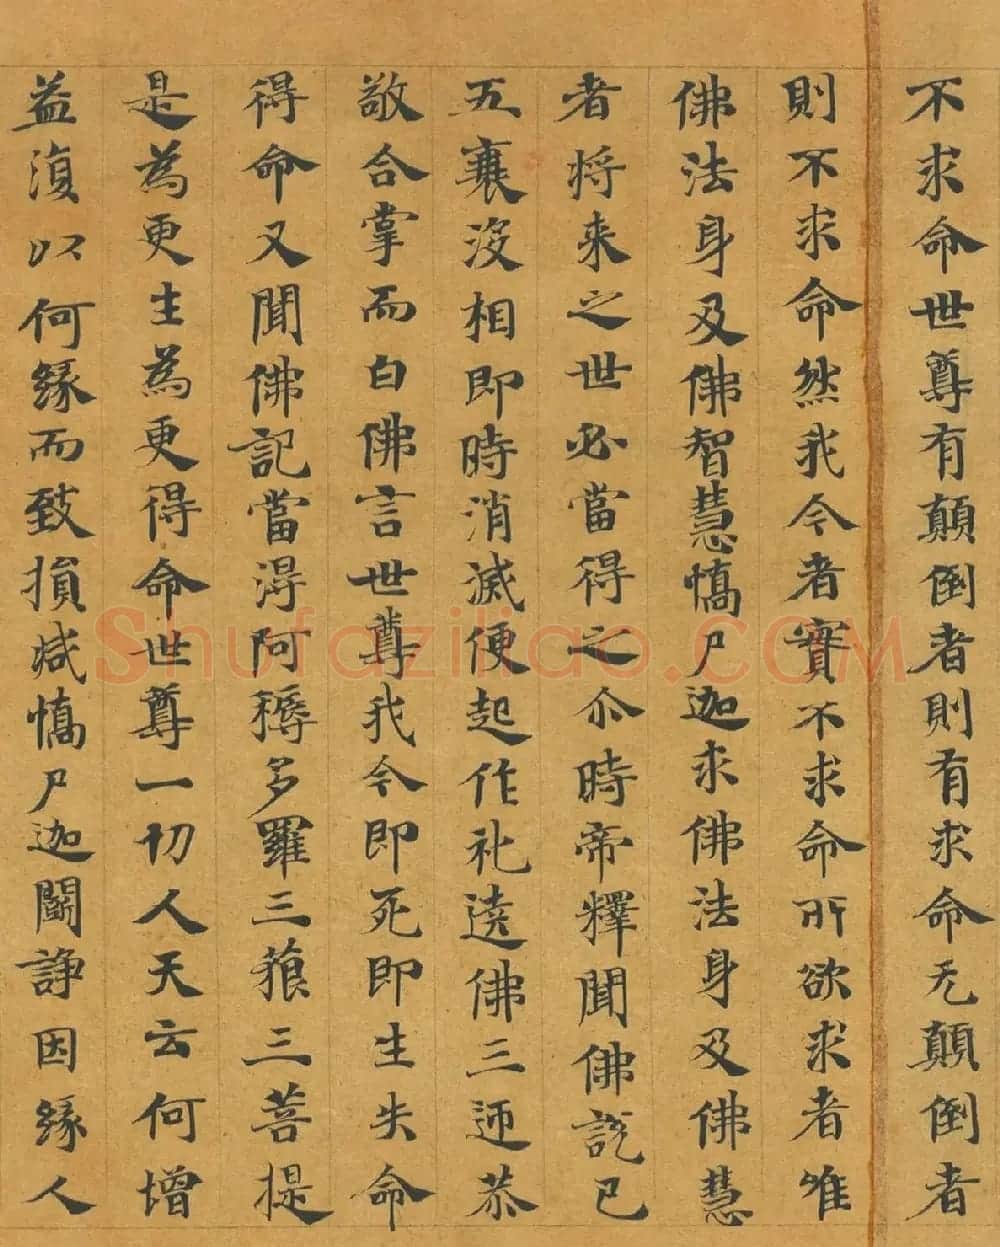 不求命世尊有顛倒者則有求命无顛倒者
則不求命然我今者實不求命所欲求者唯
佛法身及佛智慧憍尸迦求佛法身及佛慧
者将来之世必當得之尒時帝釋聞佛說已
五衰没相即時消滅便起作礼遶佛三迊恭
敬合掌而白佛言世尊我今即死即生失命
得命又聞佛記當淂阿耨多羅三藐三菩提
是為更生為更得命世尊一切人天云何增
益復以何緣而致損减憍尸迦鬪諍因緣人
Shufaziliao.COM